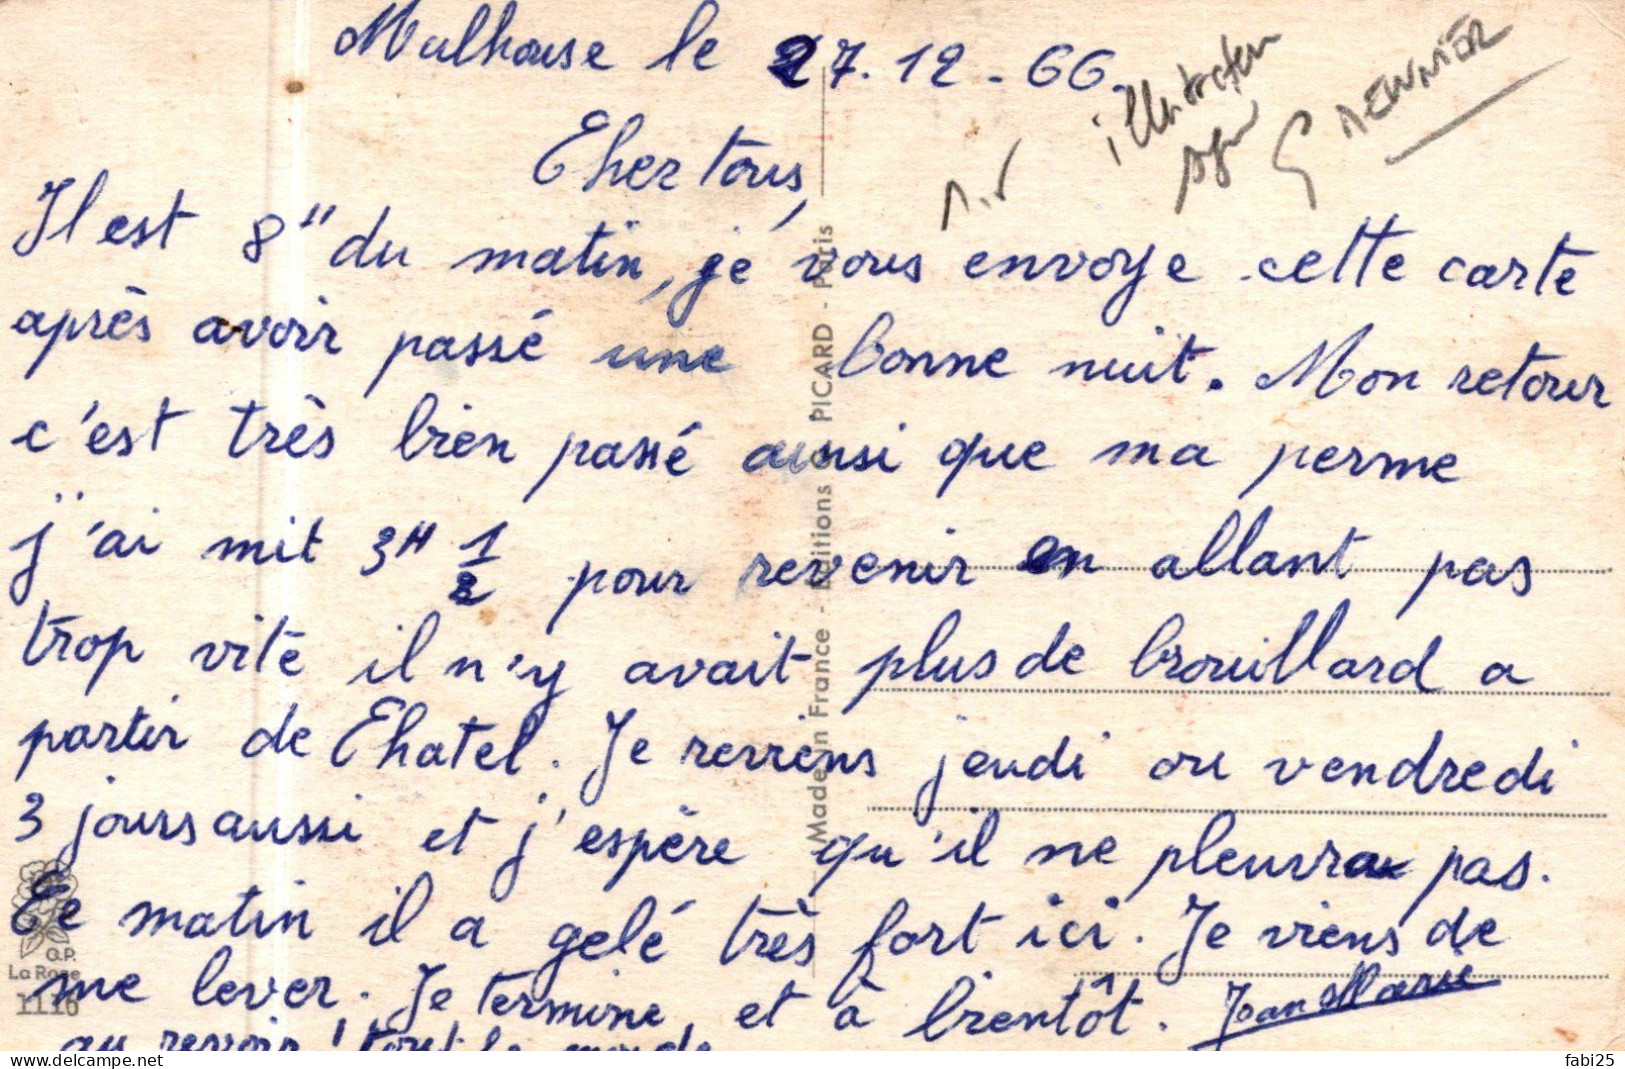 Mulhouse le 27.12-66.
Cher tous,
Il est 8H du matin, je vous envoye cette carte
après avoir passé une bonne nuit. Mon retour
c'est très bien passé ainsi que ma perme
j'ai mit 3H 1/2 pour revenir en allant pas
trop vite il n'y avait plus de brouillard a
partir de Chatel. Je reviens jeudi ou vendredi
3 jours aussi et j'espère qu'il ne pleuvra pas.
Ce matin il a gelé très fort ici. Je viens de
me lever. Je termine, et à bientôt. Jean Marie
au revoir tout le monde
illustrateur
G MEUNIER
Made in France - Editions O. PICARD - Paris
O.P.
La Rose
1110
fabi25